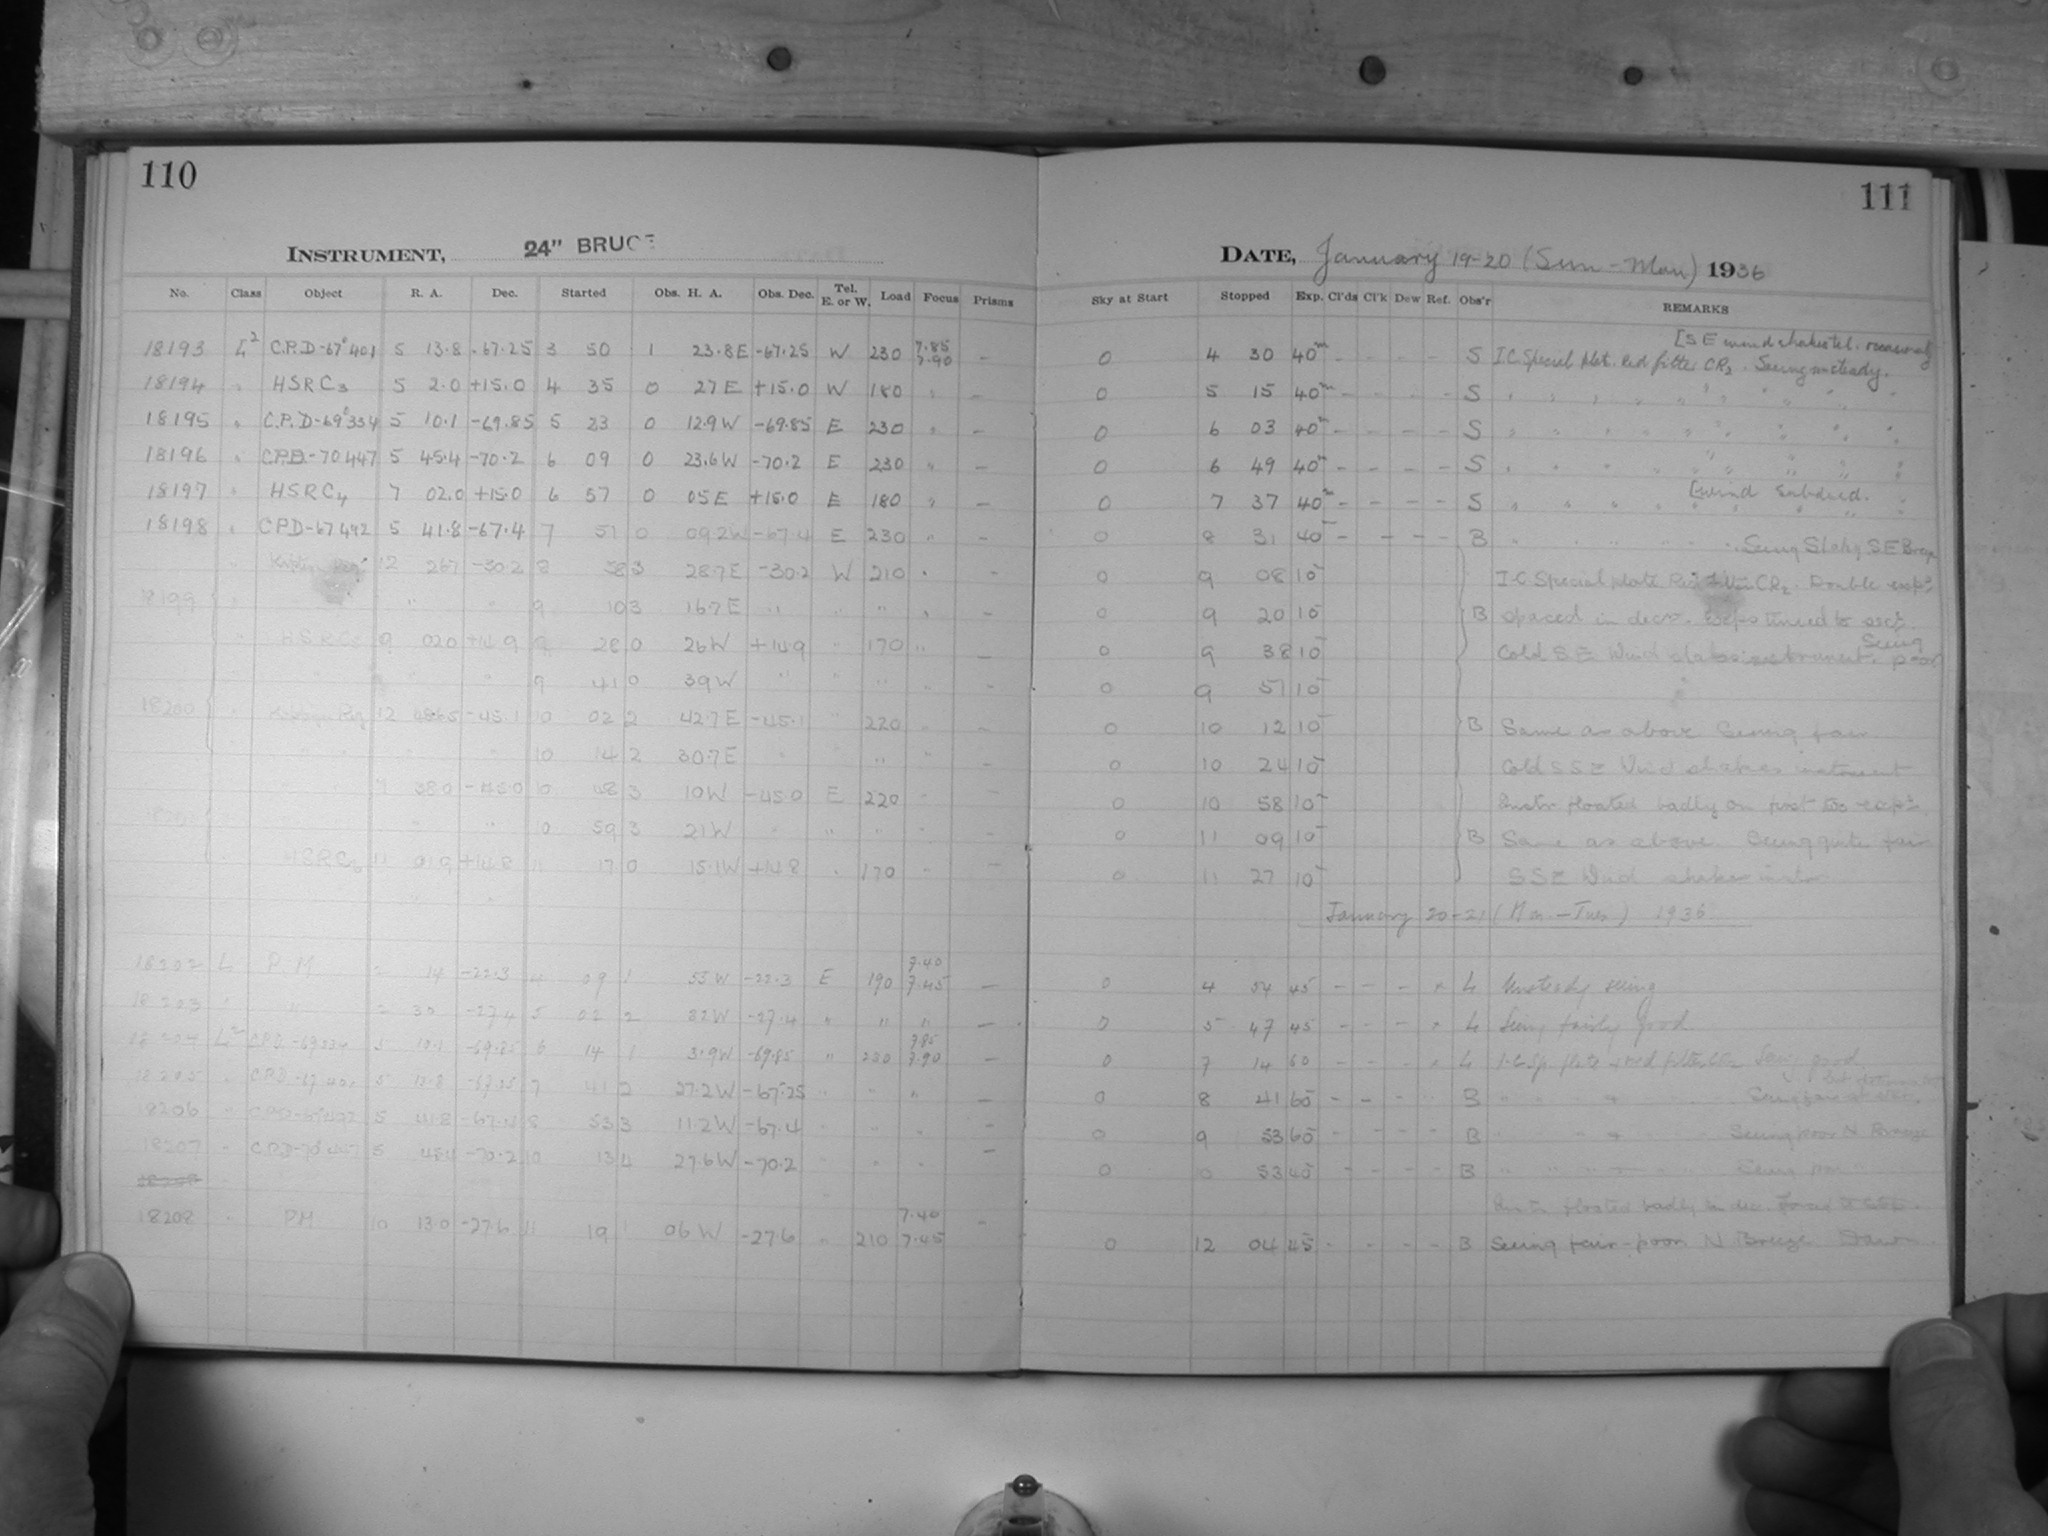 110
111
INSTRUMENT, 24" BRUCE
DATE, January 19-20 (Sun - Mon) 1936
No. Class Object R. A. Dec. Started Obs. H. A. Obs. Dec. Tel. E. or W. Load Focus Prisms Sky at Start Stopped Exp. Cl'ds Cl'k Dew Ref. Obs'r REMARKS
18193 C.P.D-67°401 5 13.8 -67.25 3 50 1 23.8E -67.25 W 230 7.85 7.90 - 0 4 30 40m S I.C. Special Plat. Red filter CR2. Seeing unsteady. [S E wind shakes tel.
18194 " HSRC3 5 2.0 +15.0 4 35 0 27E +15.0 W 180 " - 0 5 15 40m - - - - S " " " "
18195 " C.P.D-69°334 5 10.1 -69.85 5 23 0 12.9W -69.85 E 230 " - 0 6 03 40m - - - - S " " " "
18196 " CPD-70 447 5 45.4 -70.2 6 09 0 23.6W -70.2 E 230 " - 0 6 49 40m - - - - S " " " "
18197 " HSRC4 7 02.0 +15.0 6 57 0 05E +15.0 E 180 " - 0 7 37 40m - - - - S " " " " [wind subdued.
18198 " CPD-67 492 5 41.8 -67.4 7 51 0 09.2W -67.4 E 230 " - 0 8 31 40 - - - - B " " " " Seeing Shaky SE Breeze
12 26.7 -30.2 8 58 3 28.7E -30.2 W 210 " 0 9 08 10 I-C Special plate Red filter CR2. Double exp's
18199 " " 9 10 3 16.7E " " " " 0 9 20 10 B spaced in decr.
" HSRC5 9 02.0 +14.9 9 28 0 26W +14.9 " 170 " - 0 9 38 10 Cold SE Wind shakes instrument. Seeing poor
" " 9 41 0 39W " " " " - 0 9 51 10
18200 " 12 48.5 -45.1 10 02 2 42.7E -45.1 " 220 " - 0 10 12 10 B Same as above Seeing fair
" " 10 14 2 30.7E " " " - 0 10 24 10 Cold SSE Wind shakes instrument
" 7 38.0 -45.0 10 48 3 10W -45.0 E 220 " - 0 10 58 10 Instr floated badly on first two exp's
" " 10 59 3 21W " " " " - 0 11 09 10 B Same as above Seeing quite fair
HSRC6 11 01.9 +14.8 11 17 0 15.1W +14.8 " 170 " - 0 11 27 10 SSE Wind shakes instr
January 20-21 (Mon - Tues) 1936
18202 L P M 2 14 -22.3 4 09 1 55W -22.3 E 190 7.40 7.45 - 0 4 54 45 - - - × L Unsteady seeing
18203 " " 2 30 -27.4 5 02 2 32W -27.4 " " " - 0 5 47 45 - - - × L Seeing fairly good
18204 L2 CPD-69 334 5 10.1 -69.85 6 14 1 3.9W -69.85 " 230 7.85 7.90 - 0 7 14 60 - - - × L I-C Sp. plate + red filter Seeing good
18205 " CPD-67 401 5 13.8 -67.25 7 41 2 27.2W -67.25 " " " - 0 8 41 60 - - - B
18206 " CPD-67 492 5 41.8 -67.4 8 53 3 11.2W -67.4 " " " - 0 9 53 60 - - - B Seeing poor N Breeze
18207 " CPD-70 447 5 45.4 -70.2 10 13 4 27.6W -70.2 " " " - 0 53 45 - - - B Seeing poor
Instr floated badly in dec.
18208 " PM 10 13.0 -27.6 11 19 1 06W -27.6 " 210 7.40 7.45 - 0 12 04 45 - - - B Seeing fair-poor N Breeze Dawn